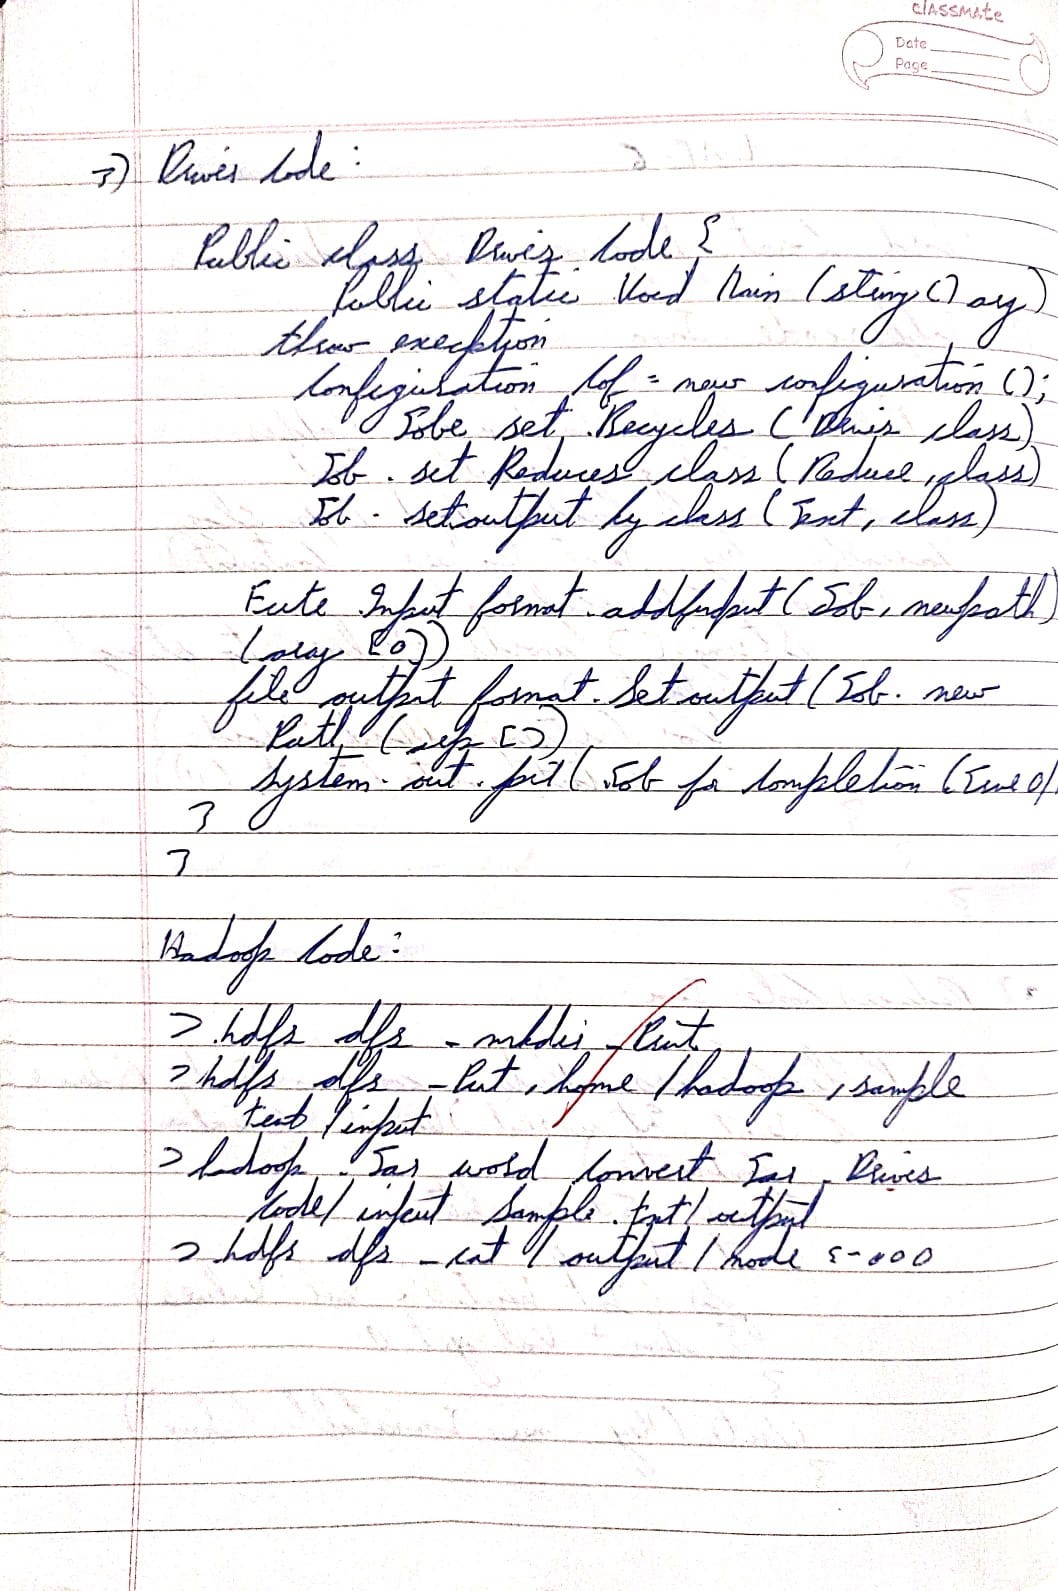 classmate
Date
Page
3) Driver Code:
Public class Driver Code {
Public static Void Main (string () arg)
throw exception
Configuration Cof = new configuration ();
Jobe set. (Driver class)
Job. set Reducer class (Reduce, class)
Job. set output by class (Text, class)
Input format. (Job, newpath)
[0])
file output format. Set output (Job. new
Path ( [])
System. out. (Job for Completion (True 0/
}
}
Hadoop Code:
> hdfs dfs -mkdir
> hdfs dfs -Put, home / hadoop, sample
text / input
> hadoop. Jar word Convert Jar. Driver
Code/ input Sample. txt/ output
> hdfs dfs -cat / output / -000